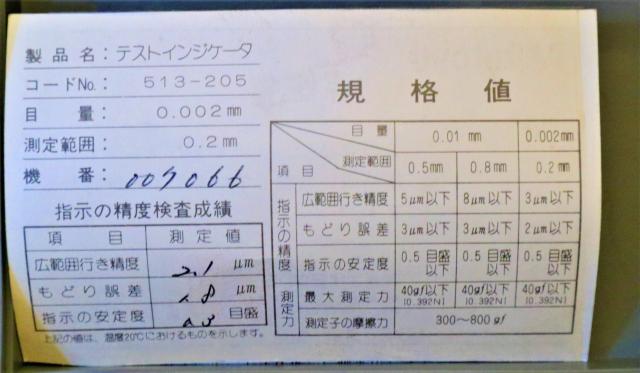 製品名:テストインジケータ
コードNo. 513-205
目 量: 0.002mm
測定範囲: 0.2mm
機 番: 007066
指示の精度検査成績
項 目 測定値
広範囲行き精度 2.1 μm
もどり誤差 1.8 μm
指示の安定度 0.3 目盛
上記の値は、温度20℃におけるものを示します。
規 格 値
目 量 0.01mm 0.002mm
項 目 測定範囲 0.5mm 0.8mm 0.2mm
指示の精度 広範囲行き精度 5μm以下 8μm以下 3μm以下
もどり誤差 3μm以下 3μm以下 2μm以下
指示の安定度 0.5目盛以下 0.5目盛以下 0.5目盛以下
測定力 最大測定力 40gf以下 [0.392N] 40gf以下 [0.392N] 40gf以下 [0.392N]
測定子の摩擦力 300〜800gf